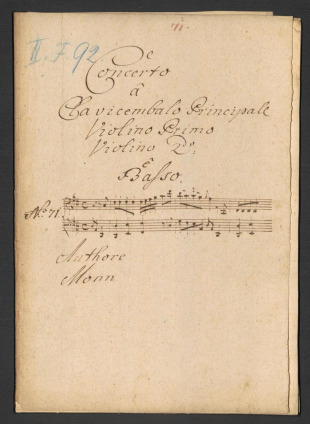 71.
II. F. 92
De
Concerto
â
Clavicembalo Principale
Violino Primo
Violino 2do.
è
Basso.
No: 71.
Authore
Monn